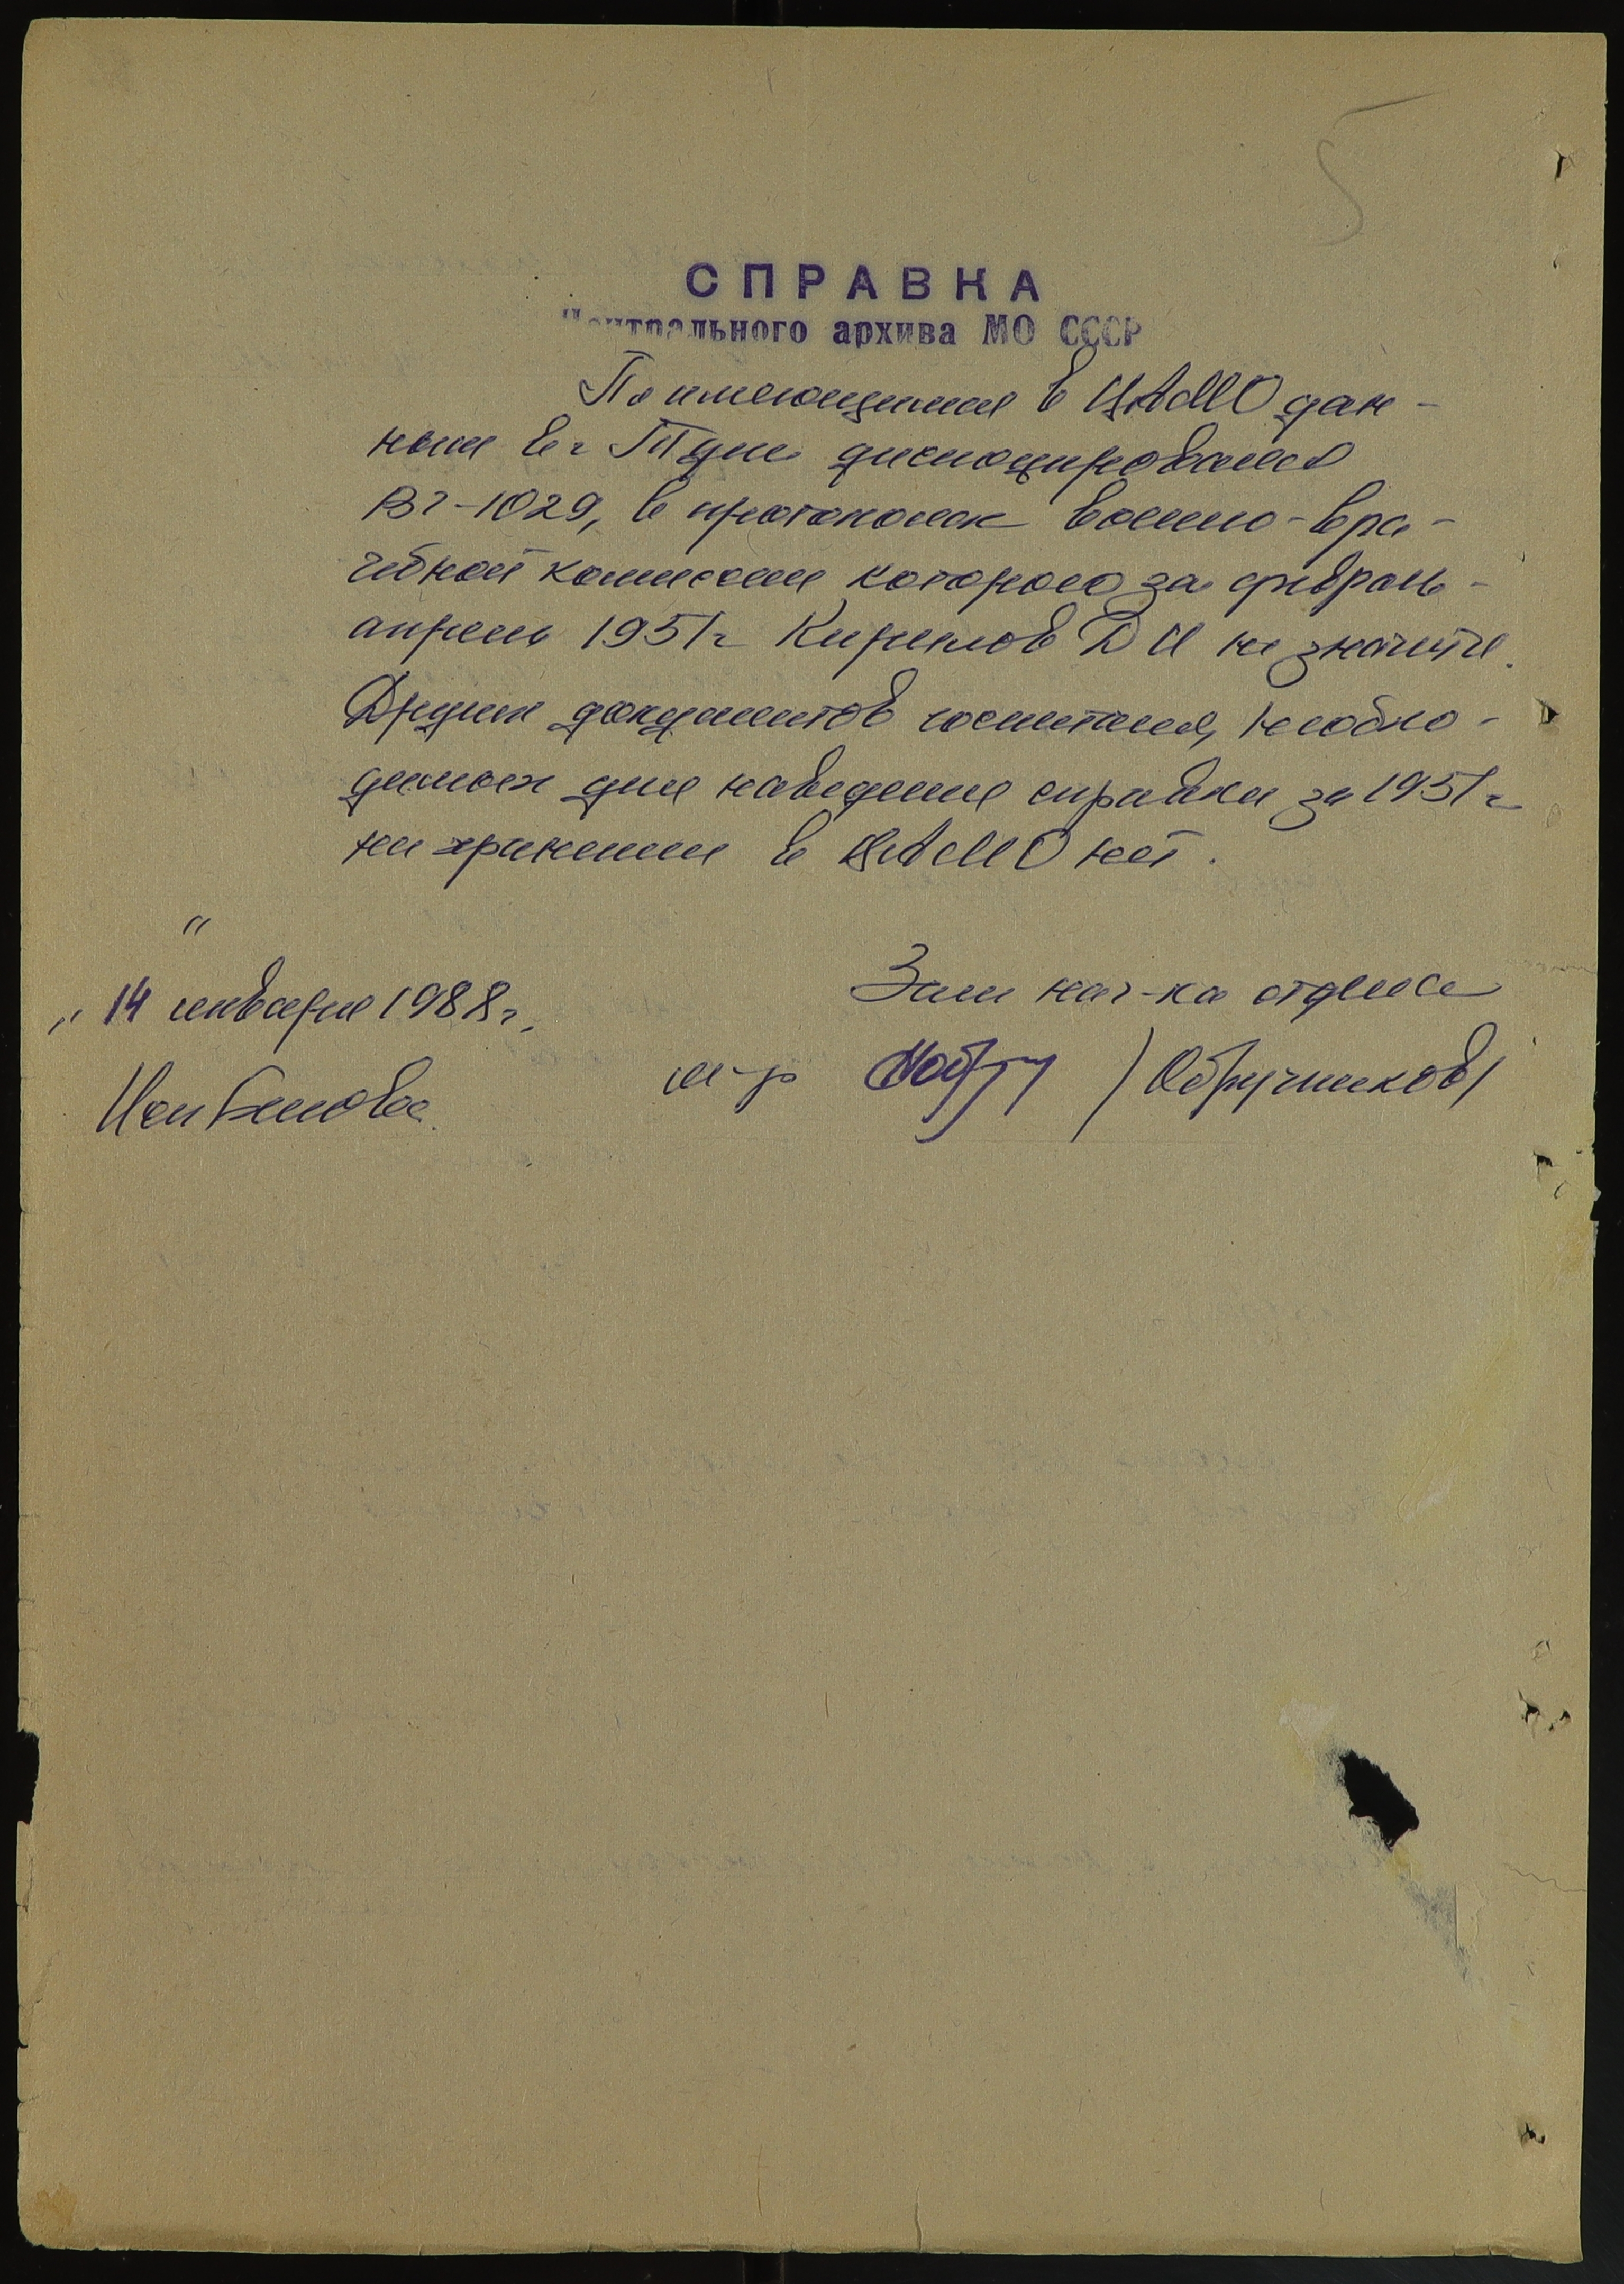 5
СПРАВКА
Центрального архива МО СССР
По имеющимся в ЦАМО дан-
ным в г. Туле дислоцировался
ВГ-1029, в протоколах военно-вра-
чебной комиссии которого за февраль-
апрель 1951г Кирилов Д И не значится.
Других документов госпиталя, необхо-
димых для наведения справки за 1951г
на хранении в ЦАМО нет.
Зам нач-ка отдела
"14" января 1988г.
м-р /Обручников/
Исп Белова